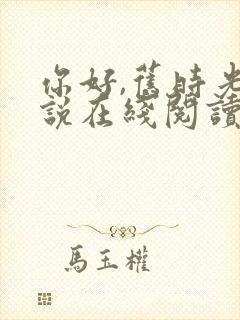 你好,舊時光
說在綫閱讀
馬玉權